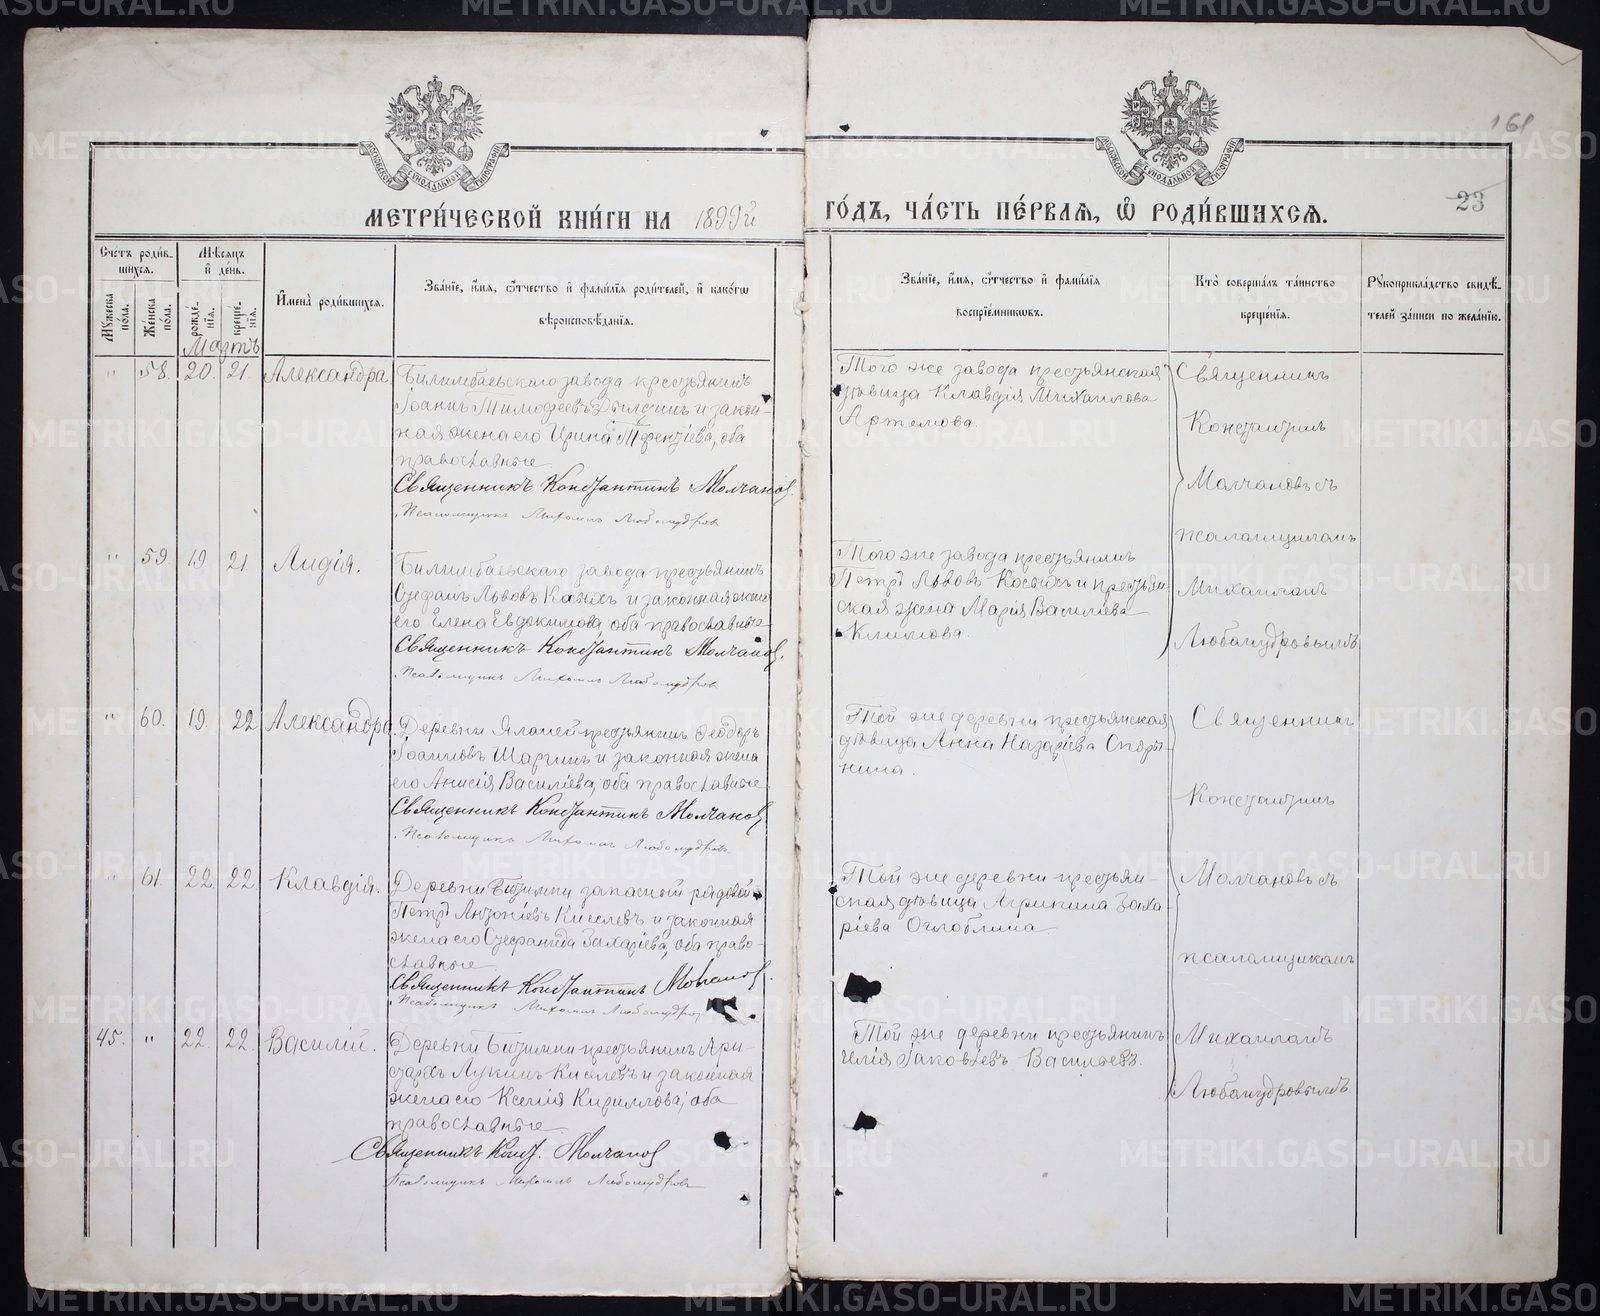 161
МОСКОВСКОЙ СѴНОДАЛЬНОЙ ТИПОГРАФІИ
МОСКОВСКОЙ СѴНОДАЛЬНОЙ ТИПОГРАФІИ
МЕТРИ́ЧЕСКОЙ КНИ́ГИ НА 1899й
ГО́ДЪ, ЧА́СТЬ ПЕ́РВАЯ, Ѽ РОДИ́ВШИХСЯ.
23
Счетъ роди́в-
шихся.
Мѣсяцъ
и҆ де́нь.
Му́жеска по́ла.
Же́нска по́ла.
рожде́-
нїя.
креще́-
нїя.
И҆мена̀ роди́вшихся.
Зва́нїе, и҆́мя, ѻ҆́тчество и҆ фами́лїя роди́телей, и҆ како́гѡ
вѣроисповѣ́данїя.
Зва́нїе, и҆́мя, ѻ҆́тчество и҆ фами́лїя
воспрїе́мниковъ.
Кто̀ соверша́лъ та́инство
креще́нїя.
Рꙋкоприкла́дство свидѣ́-
телей за́писи по жела́нїю.
Мартъ
" 58. 20. 21. Александра
Билимбаевскаго завода крестьянинъ
Іоаннъ Тимофеевъ и закон-
ная жена его Ирина Терентіева, оба
православные
Священникъ Константинъ Молчановъ.
Псаломщикъ Михаилъ Любомудровъ
Того же завода крестьянская
дѣвица Клавдія Михаилова
Артемова.
Священникъ
Константинъ
Молчановъ съ
псаломщикомъ
Михаиломъ
Любомудровымъ
" 59 19 21. Лидія.
Билимбаевскаго завода крестьянинъ
Стефанъ Львовъ и законная жена
его Елена Евдокимова, оба православные
Священникъ Константинъ Молчановъ.
Псаломщикъ Михаилъ Любомудровъ
Того же завода крестьянинъ
Петръ Львовъ Косыхъ и крестьян-
ская жена Марія Василіева
Климова.
" 60. 19. 22 Александра.
Деревни крестьянинъ Ѳеодоръ
Іоанновъ и законная жена
его Анисія Василіева, оба православные
Священникъ Константинъ Молчановъ
Псаломщикъ Михаилъ Любомудровъ
Той же деревни крестьянская
дѣвица Анна Назаріева Споры-
нина.
Священникъ
Константинъ
Молчановъ съ
псаломщикомъ
Михаиломъ
Любомудровымъ
" 61. 22. 22. Клавдія.
Деревни Битимки запасный рядовой
Петръ Антоніевъ Киселевъ и законная
жена его Стефанида Захаріева, оба право-
славные
Священникъ Константинъ Молчановъ.
Псаломщикъ Михаилъ Любомудровъ
Той же деревни крестьян-
ская дѣвица Агрипина Заха-
ріева Оглоблина
45. " 22. 22. Василій.
Деревни Битимки крестьянинъ Ари-
стархъ Лукинъ Киселевъ и законная
жена его Ксенія Кириллова, оба
православные.
Священникъ Конст. Молчановъ
Псаломщикъ Михаилъ Любомудровъ
Той же деревни крестьянинъ
Илія Іаковлевъ Васильевъ.
METRIKI.GASO-URAL.RU